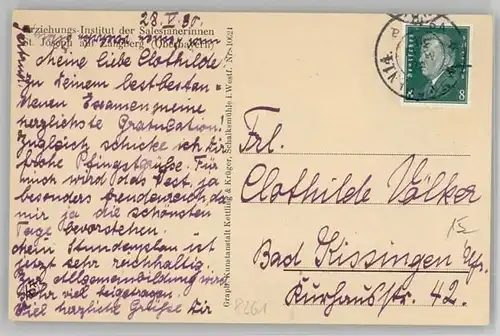 28. V. 30.
Erziehungs-Institut der Salesianerinnen
St. Joseph auf Zangberg (Oberbayern)
Meine liebe Clothilde
Zu Deinem bestbestan-
denen Examen meine
herzlichste Gratulation!
Zugleich schicke ich Dir
frohe Pfingstgrüße. Für
mich wird das Fest ja
besonders freudenreich, da
mir ja die schönsten
Tage bevorstehen.
Mein Stundenplan ist
jetzt sehr reichhaltig.
Zur Allgemeinbildung wird
sehr viel beigetragen.
Viel herzliche Grüße Dir
Graph. Kunstanstalt Kettling & Krüger, Schalksmühle i. Westf. Nr. 10021
8261
Deutsches Reich
8
Frl.
Clothilde Völker
Bad Kissingen Ufr.
Kurhausstr. 42.